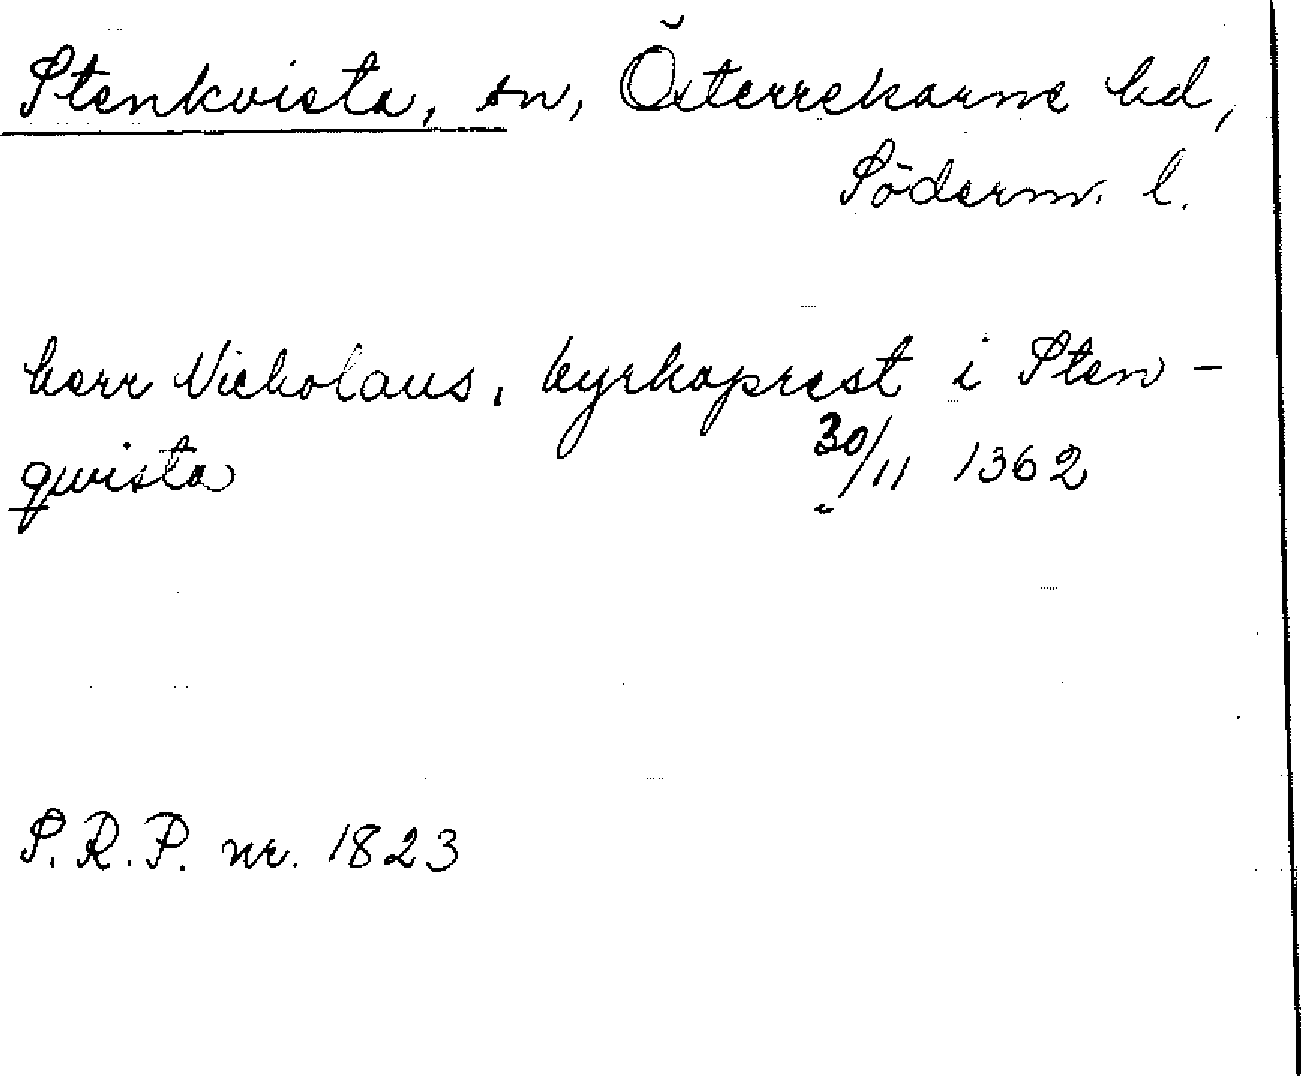 Stenkvista, sn, Österrekarne hd,
Söderm. l.
herr Nicholaus, kyrkoprest i Sten-
qwista 30/11 1362
S.R.P. nr. 1823